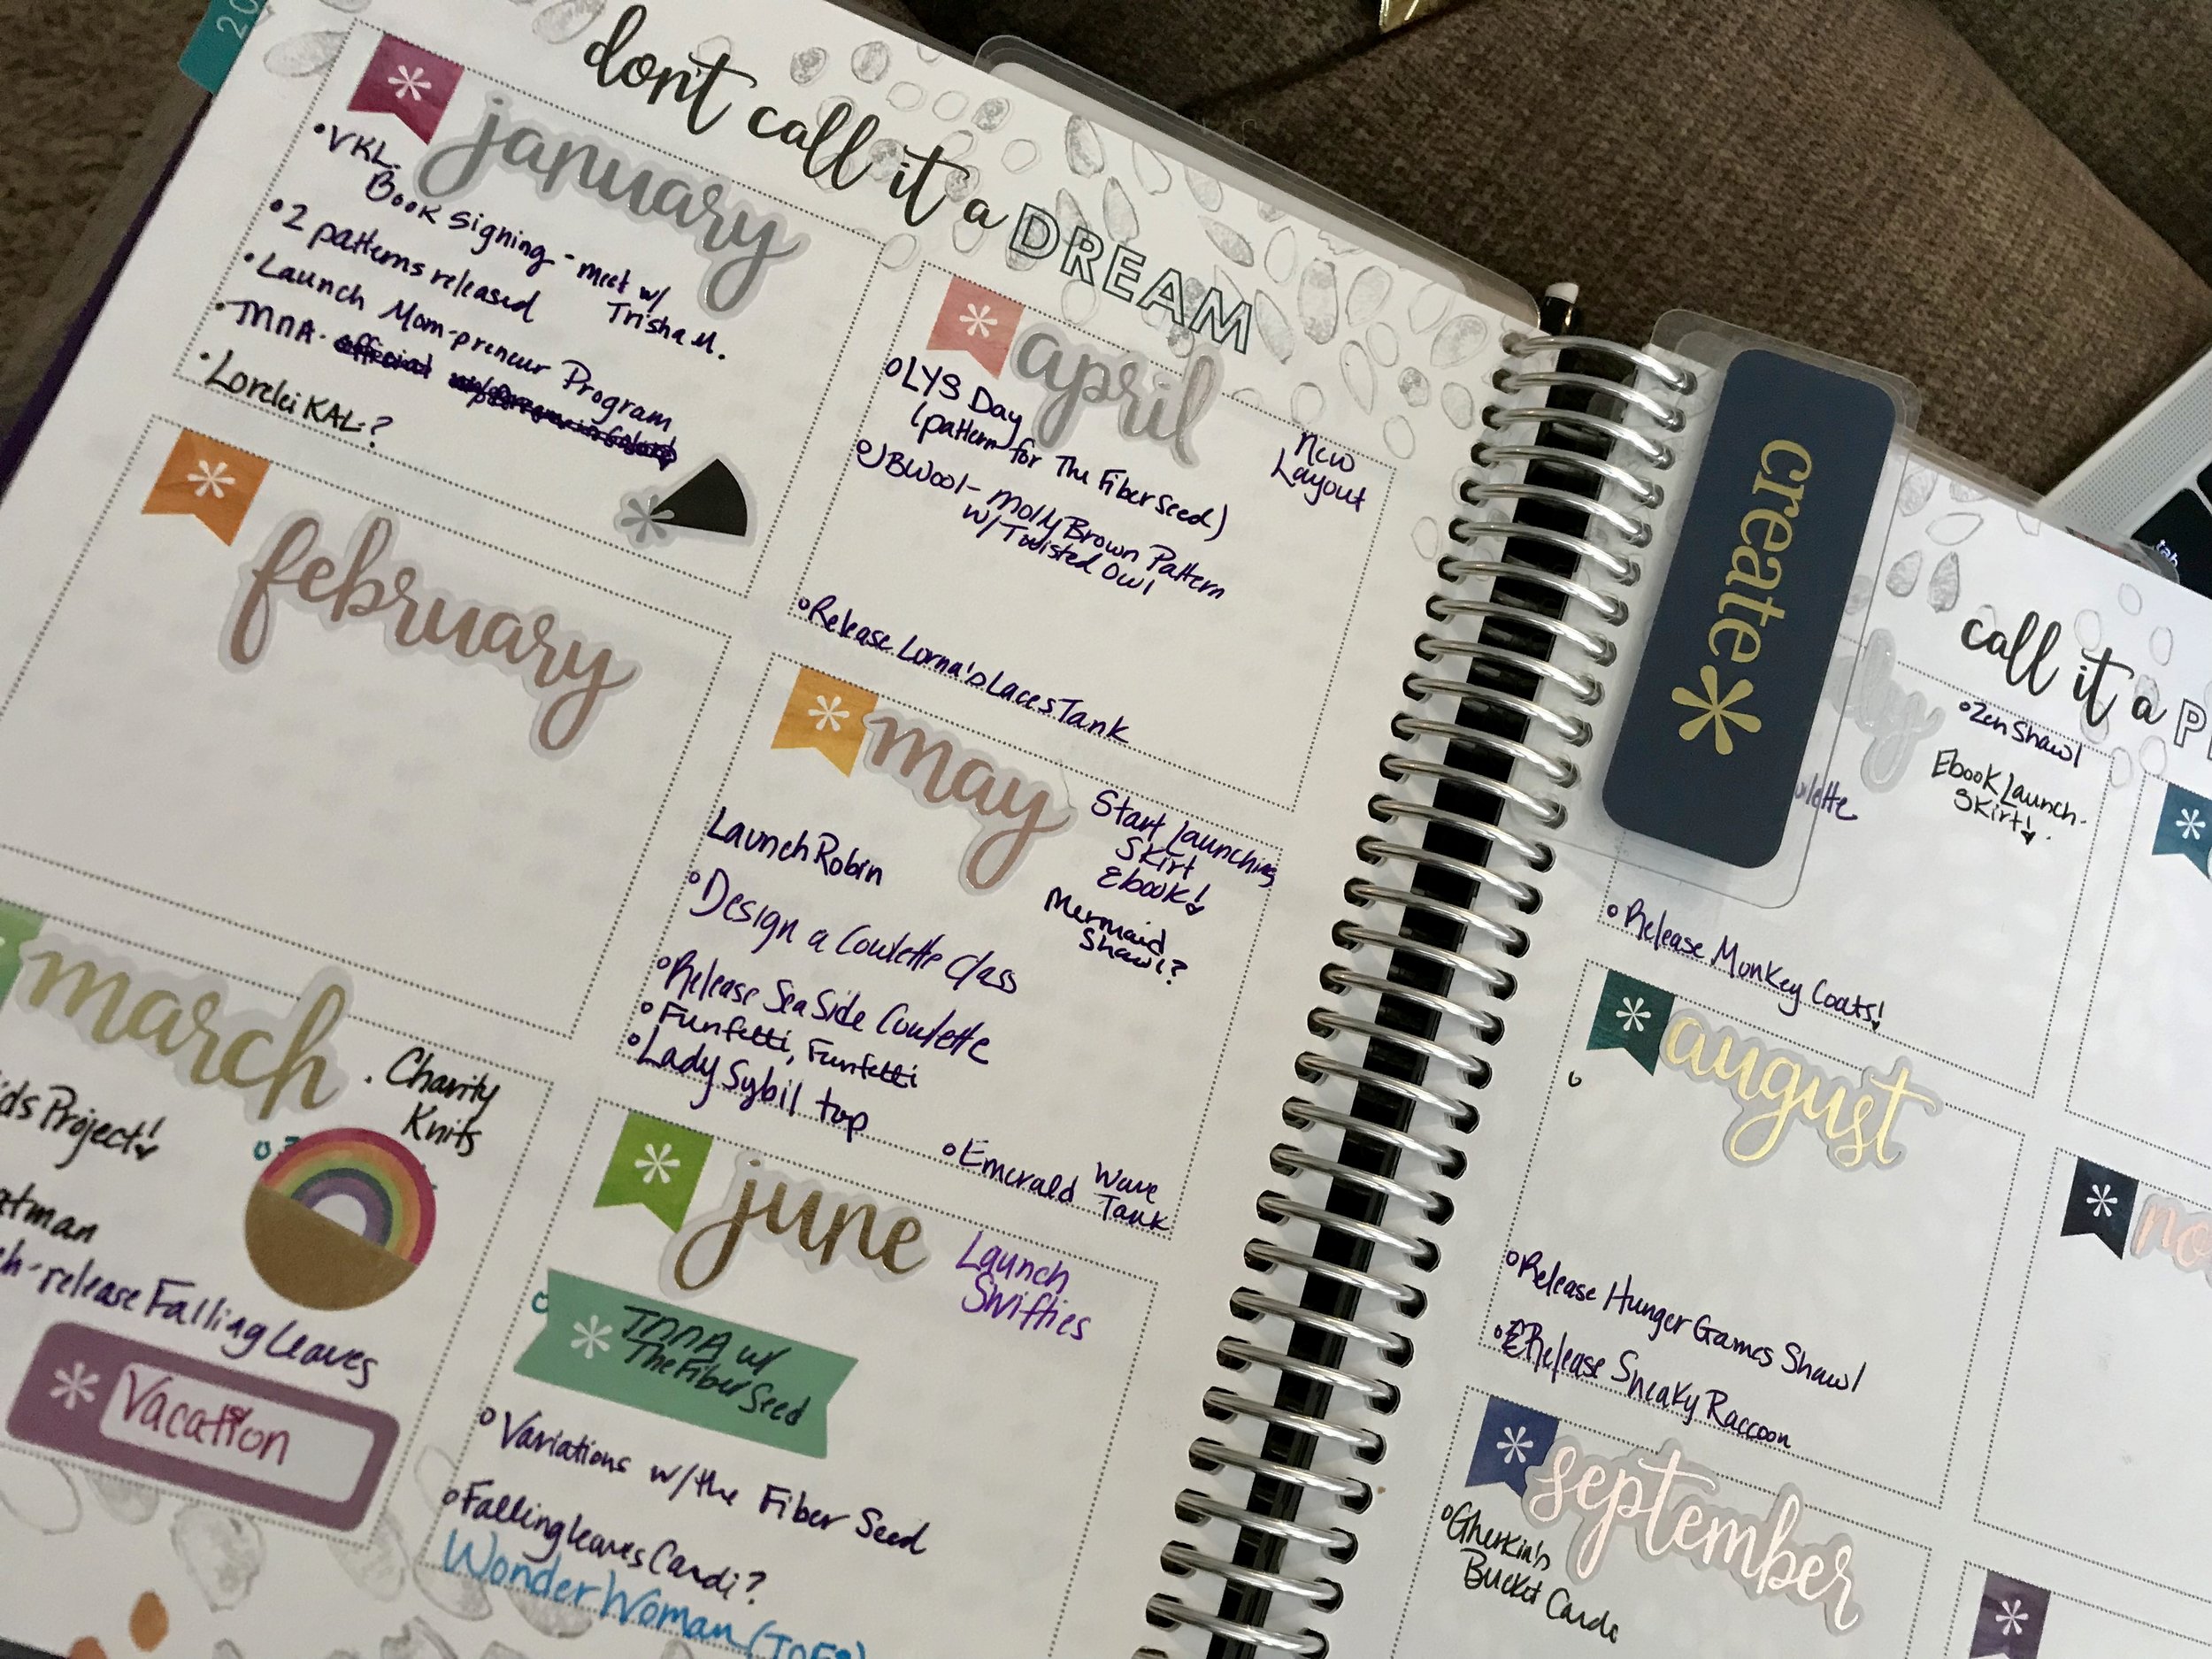 20
don't call it a DREAM
january
• VKL
Book signing - meet w/
Trisha M.
• 2 patterns released
• Launch Mom-preneur Program
• TNNA - official
• Lorelei KAL?
february
march
. Charity
Knits
ds Project!
atman
ch - release Falling Leaves
Vacation
april
New
Layout
○ LYS Day
(pattern for The Fiber Seed)
○ JBWool - Molly Brown Pattern
w/ Twisted Owl
○ Release Lorna's Laces Tank
may
Start Launching
Skirt
Ebook!
Mermaid
Shawl?
Launch Robin
○ Design a Cowlette Class
○ Release Sea Side Cowlette
○ Funfetti, Funfetti
○ Lady Sybil top
○ Emerald Wave
Tank
june
Launch
Swifties
TNNA w/
The Fiber Seed
○ Variations w/ the Fiber Seed
○ Falling leaves Cardi?
Wonder Woman
create
call it a P
ly
○ Zen Shawl
Ebook Launch -
Skirt!
wlette
○ Release Monkey Coats!
august
○ Release Hunger Games Shawl
○ Release Sneaky Raccoon
september
○ Gherkin's
Bucket Cardi
no
tab